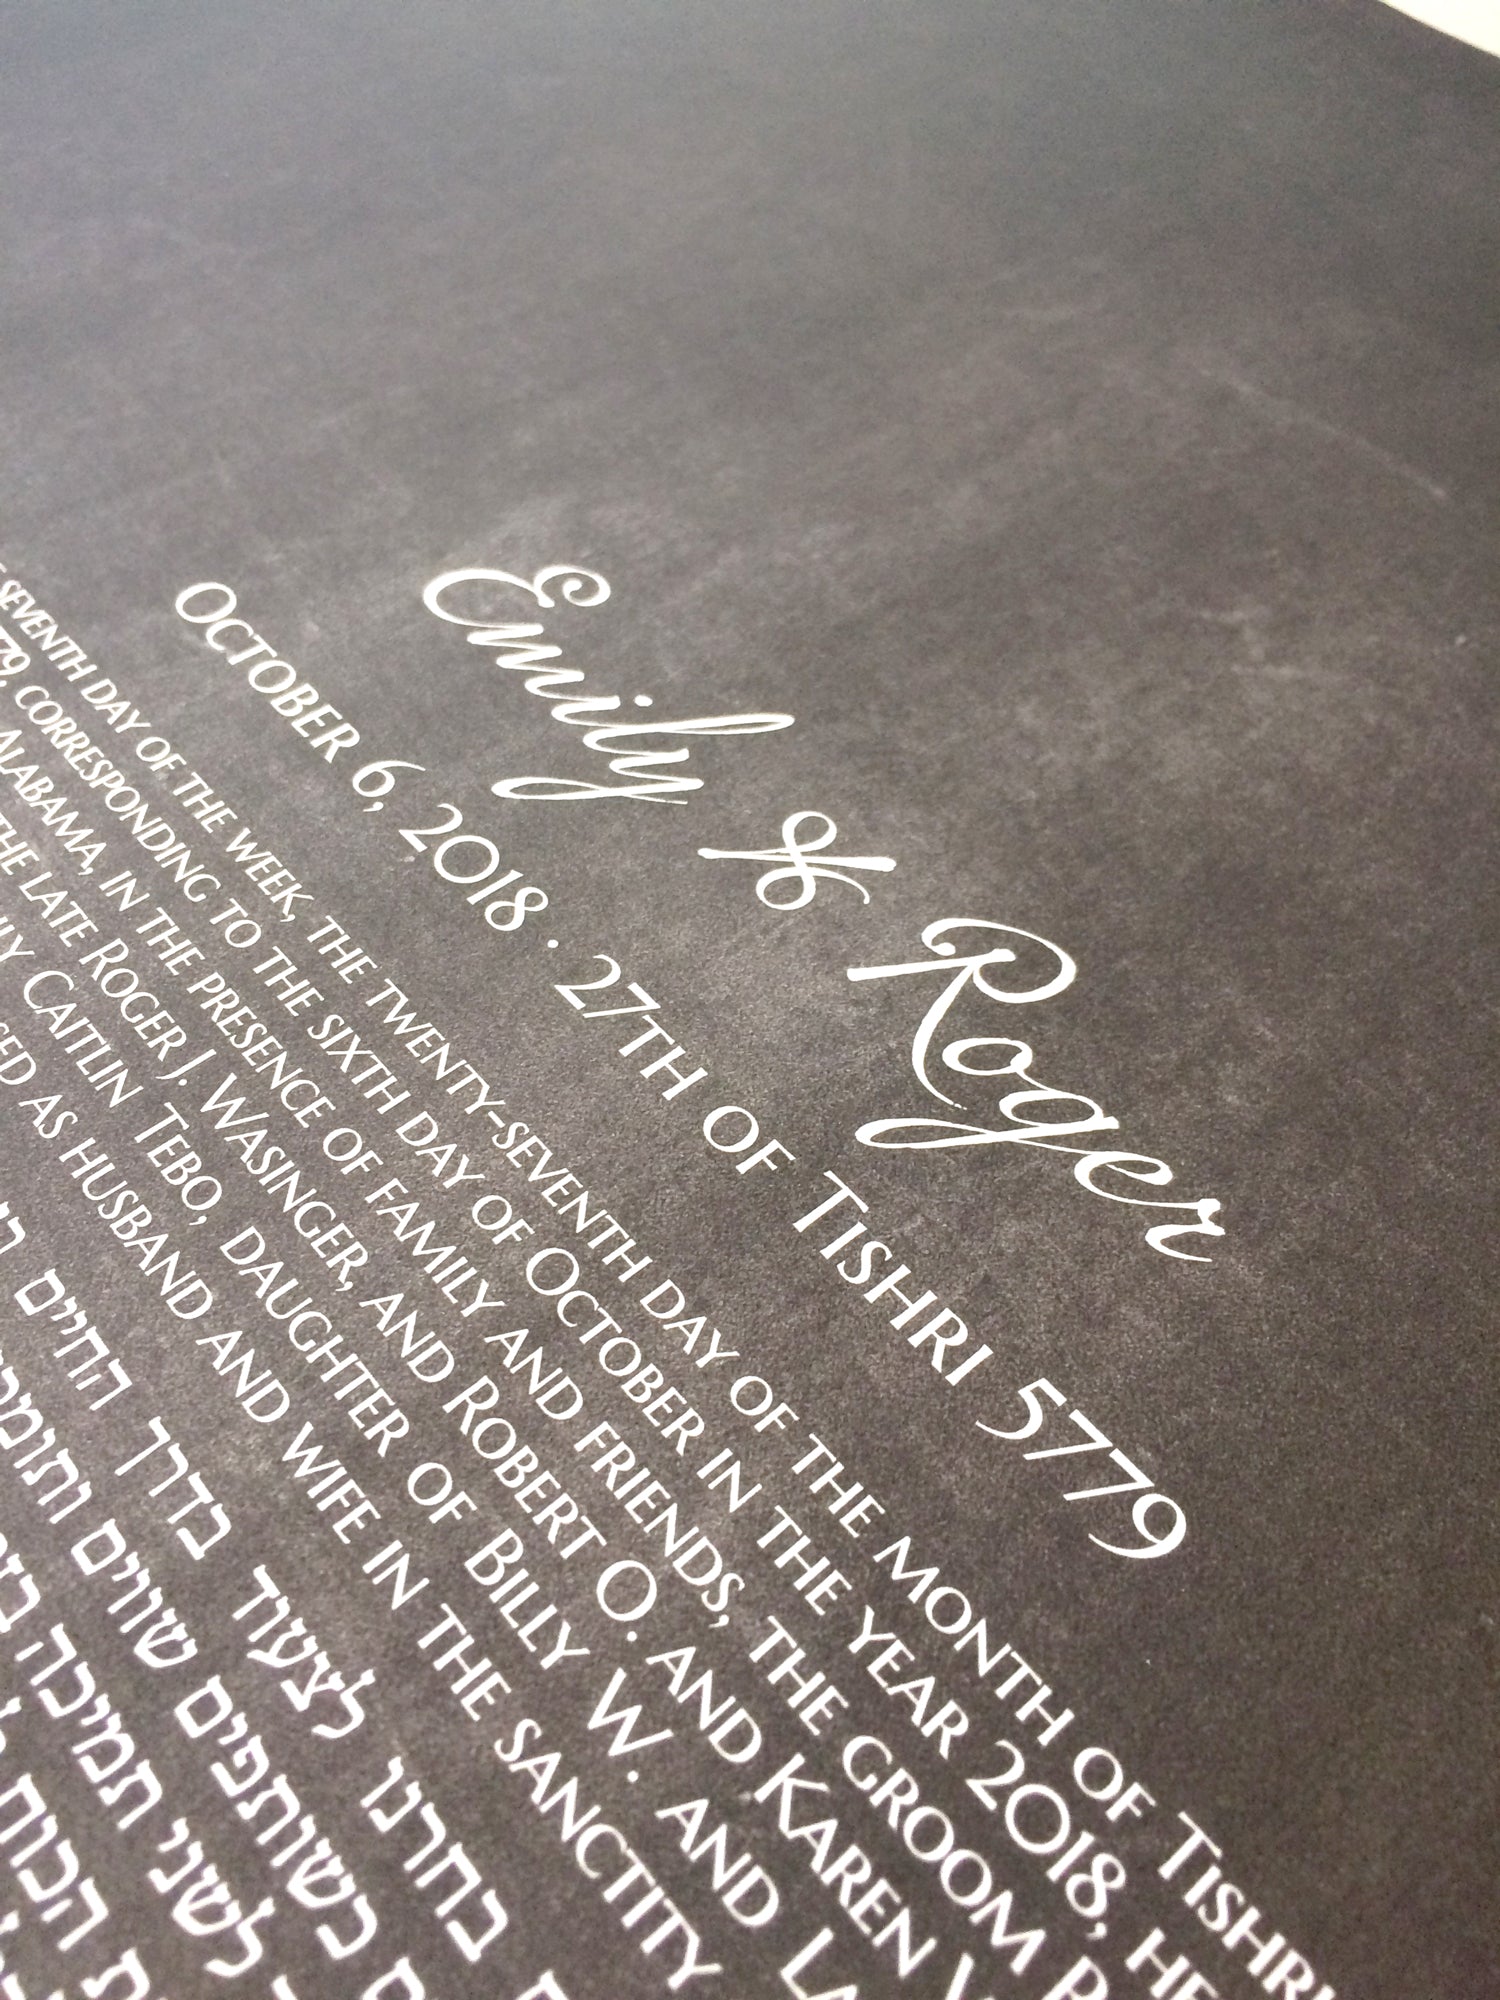 Emily & Roger
OCTOBER 6, 2018 · 27TH OF TISHRI 5779
SEVENTH DAY OF THE WEEK, THE TWENTY-SEVENTH DAY OF THE MONTH OF TISHRI
CORRESPONDING TO THE SIXTH DAY OF OCTOBER IN THE YEAR 2018,
ALABAMA, IN THE PRESENCE OF FAMILY AND FRIENDS, THE GROOM
THE LATE ROGER J. WASINGER, AND ROBERT O. AND KAREN
CAITLIN TEBO, DAUGHTER OF BILLY W. AND
AS HUSBAND AND WIFE IN THE SANCTITY
בחרנו לצעוד בדרך החיים
כשותפים שווים
לשני תמיכה
הכוח